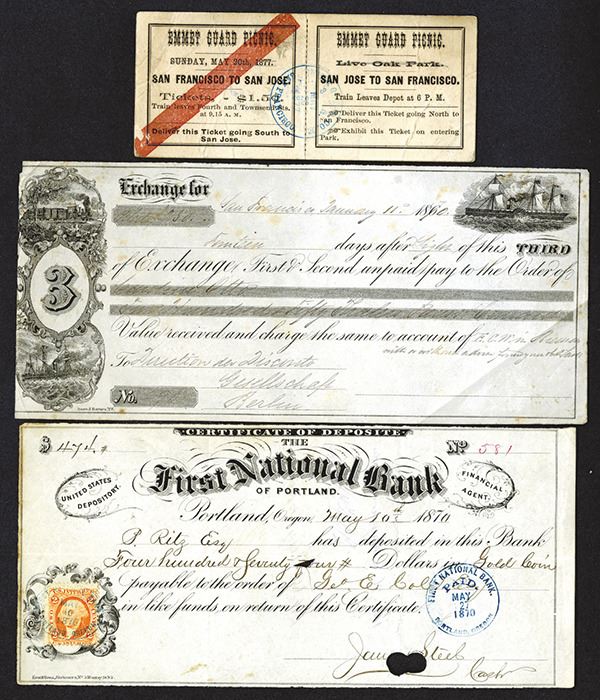 EMMET GUARD PICNIC.
SUNDAY, MAY 20th, 1877.
SAN FRANCISCO TO SAN JOSE.
Tickets, - $1.50
Train leaves Fourth and Townsend sts,
at 9.15 A. M.
Deliver this Ticket going South to
San Jose.
EMMET GUARD PICNIC.
Live Oak Park.
SAN JOSE TO SAN FRANCISCO.
Train Leaves Depot at 6 P. M.
Deliver this Ticket going North to
San Francisco.
Exhibit this Ticket on entering
Park.
Exchange for
San Francisco January 11th 1860
days after Sight of this THIRD
of Exchange, First & Second unpaid, pay to the Order of
3
Value received and charge the same to account of
To Direction der Disconto
Gesellschaft
Berlin
No.
CERTIFICATE OF DEPOSITE
$ 474
THE
No 581
First National Bank
OF PORTLAND.
UNITED STATES DEPOSITORY.
FINANCIAL AGENT.
Portland, Oregon, May 10th 1870
P. Ritz Esq has deposited in this Bank
Four hundred & Seventy four Dollars Gold Coin
payable to the order of Geo E. Cole
in like funds on return of this Certificate.
FIRST NATIONAL BANK.
PAID
MAY
21
1870
PORTLAND, OREGON
James Steel
Cash